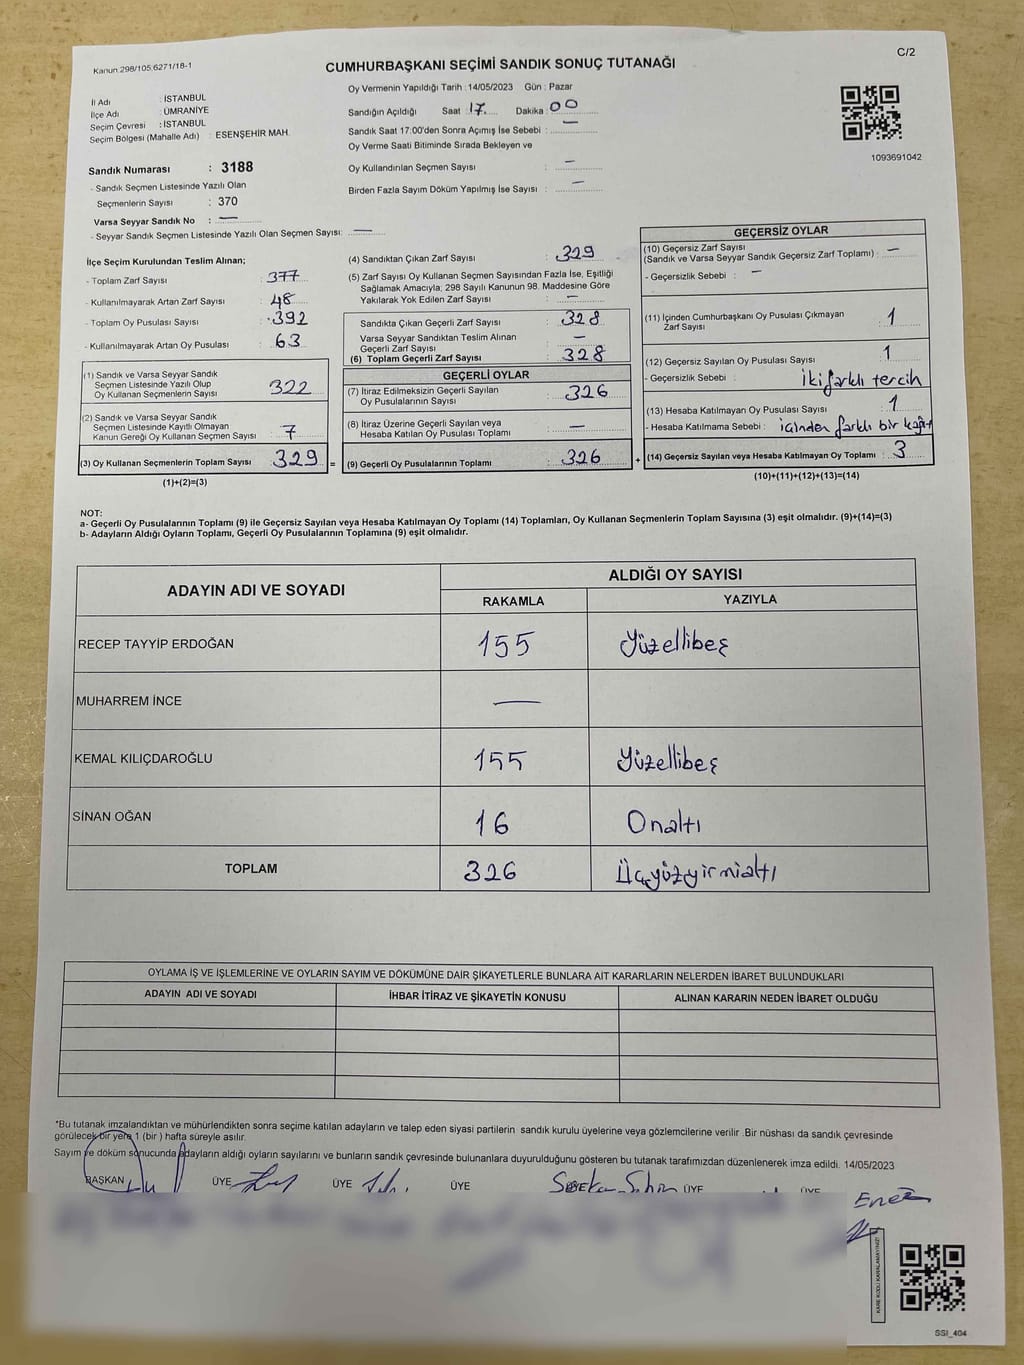 C/2
Kanun:298/105;6271/18-1
CUMHURBAŞKANI SEÇİMİ SANDIK SONUÇ TUTANAĞI
İl Adı : İSTANBUL
İlçe Adı : ÜMRANİYE
Seçim Çevresi : İSTANBUL
Seçim Bölgesi (Mahalle Adı) : ESENŞEHİR MAH.
Oy Vermenin Yapıldığı Tarih : 14/05/2023 Gün : Pazar
Sandığın Açıldığı Saat : 17 Dakika : 00
Sandık Saat 17:00'den Sonra Açımış İse Sebebi : —
Oy Verme Saati Bitiminde Sırada Bekleyen ve
Oy Kullandırılan Seçmen Sayısı : —
Birden Fazla Sayım Döküm Yapılmış İse Sayısı : —
1093691042
Sandık Numarası : 3188
- Sandık Seçmen Listesinde Yazılı Olan
Seçmenlerin Sayısı : 370
Varsa Seyyar Sandık No : —
- Seyyar Sandık Seçmen Listesinde Yazılı Olan Seçmen Sayısı: —
İlçe Seçim Kurulundan Teslim Alınan;
- Toplam Zarf Sayısı : 377
- Kullanılmayarak Artan Zarf Sayısı : 48
- Toplam Oy Pusulası Sayısı : 392
- Kullanılmayarak Artan Oy Pusulası : 63
(1) Sandık ve Varsa Seyyar Sandık
Seçmen Listesinde Yazılı Olup
Oy Kullanan Seçmenlerin Sayısı : 322
(2) Sandık ve Varsa Seyyar Sandık
Seçmen Listesinde Kayıtlı Olmayan
Kanun Gereği Oy Kullanan Seçmen Sayısı : 7
(3) Oy Kullanan Seçmenlerin Toplam Sayısı : 329 =
(1)+(2)=(3)
(4) Sandıktan Çıkan Zarf Sayısı : 329
(5) Zarf Sayısı Oy Kullanan Seçmen Sayısından Fazla İse, Eşitliği
Sağlamak Amacıyla; 298 Sayılı Kanunun 98. Maddesine Göre
Yakılarak Yok Edilen Zarf Sayısı : —
Sandıkta Çıkan Geçerli Zarf Sayısı : 328
Varsa Seyyar Sandıktan Teslim Alınan
Geçerli Zarf Sayısı : —
(6) Toplam Geçerli Zarf Sayısı : 328
GEÇERLİ OYLAR
(7) İtiraz Edilmeksizin Geçerli Sayılan
Oy Pusulalarının Sayısı : 326
(8) İtiraz Üzerine Geçerli Sayılan veya
Hesaba Katılan Oy Pusulası Toplamı : —
(9) Geçerli Oy Pusulalarının Toplamı : 326 +
GEÇERSİZ OYLAR
(10) Geçersiz Zarf Sayısı
(Sandık ve Varsa Seyyar Sandık Geçersiz Zarf Toplamı) : —
- Geçersizlik Sebebi : —
(11) İçinden Cumhurbaşkanı Oy Pusulası Çıkmayan
Zarf Sayısı : 1
(12) Geçersiz Sayılan Oy Pusulası Sayısı : 1
- Geçersizlik Sebebi : iki farklı tercih
(13) Hesaba Katılmayan Oy Pusulası Sayısı : 1
- Hesaba Katılmama Sebebi : içinden farklı bir kağıt
(14) Geçersiz Sayılan veya Hesaba Katılmayan Oy Toplamı : 3
(10)+(11)+(12)+(13)=(14)
NOT:
a- Geçerli Oy Pusulalarının Toplamı (9) ile Geçersiz Sayılan veya Hesaba Katılmayan Oy Toplamı (14) Toplamları, Oy Kullanan Seçmenlerin Toplam Sayısına (3) eşit olmalıdır. (9)+(14)=(3)
b- Adayların Aldığı Oyların Toplamı, Geçerli Oy Pusulalarının Toplamına (9) eşit olmalıdır.
ADAYIN ADI VE SOYADI
ALDIĞI OY SAYISI
RAKAMLA YAZIYLA
RECEP TAYYİP ERDOĞAN 155 Yüzellibeş
MUHARREM İNCE —
KEMAL KILIÇDAROĞLU 155 Yüzellibeş
SİNAN OĞAN 16 Onaltı
TOPLAM 326 Üçyüzyirmialtı
OYLAMA İŞ VE İŞLEMLERİNE VE OYLARIN SAYIM VE DÖKÜMÜNE DAİR ŞİKAYETLERLE BUNLARA AİT KARARLARIN NELERDEN İBARET BULUNDUKLARI
ADAYIN ADI VE SOYADI İHBAR İTİRAZ VE ŞİKAYETİN KONUSU ALINAN KARARIN NEDEN İBARET OLDUĞU
*Bu tutanak imzalandıktan ve mühürlendikten sonra seçime katılan adayların ve talep eden siyasi partilerin sandık kurulu üyelerine veya gözlemcilerine verilir .Bir nüshası da sandık çevresinde
görülecek bir yere 1 (bir ) hafta süreyle asılır.
Sayım ve döküm sonucunda adayların aldığı oyların sayılarını ve bunların sandık çevresinde bulunanlara duyurulduğunu gösteren bu tutanak tarafımızdan düzenlenerek imza edildi. 14/05/2023
BAŞKAN ÜYE ÜYE ÜYE ÜYE ÜYE
KARE KODU KARALAMAYINIZ!
SSI_404